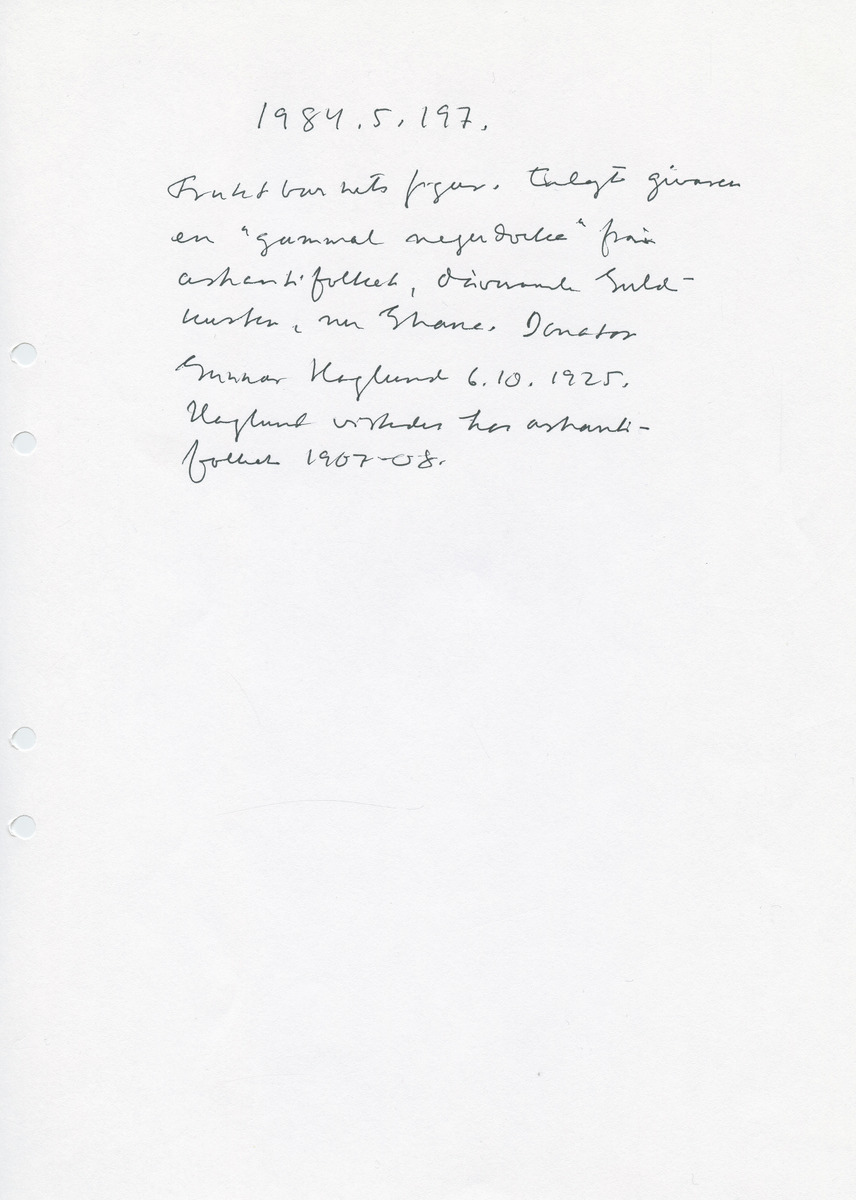 1984.5.197.
Fruktbarhetsfigur. Enligt givaren
en "gammal negerdocka" från
ashantifolket, dåvarande Guld-
kusten, nu Ghana. Donator
Gunnar Haglund 6.10.1925.
Haglund vistades hos ashanti-
folket 1907-08.